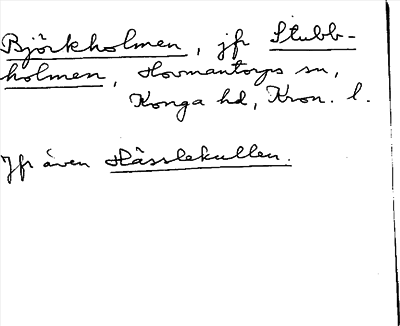 Björkholmen, jfr Stubb-
holmen, Hovmantorps sn,
Konga hd, Kron. l.
Jfr även Hässlekullen.